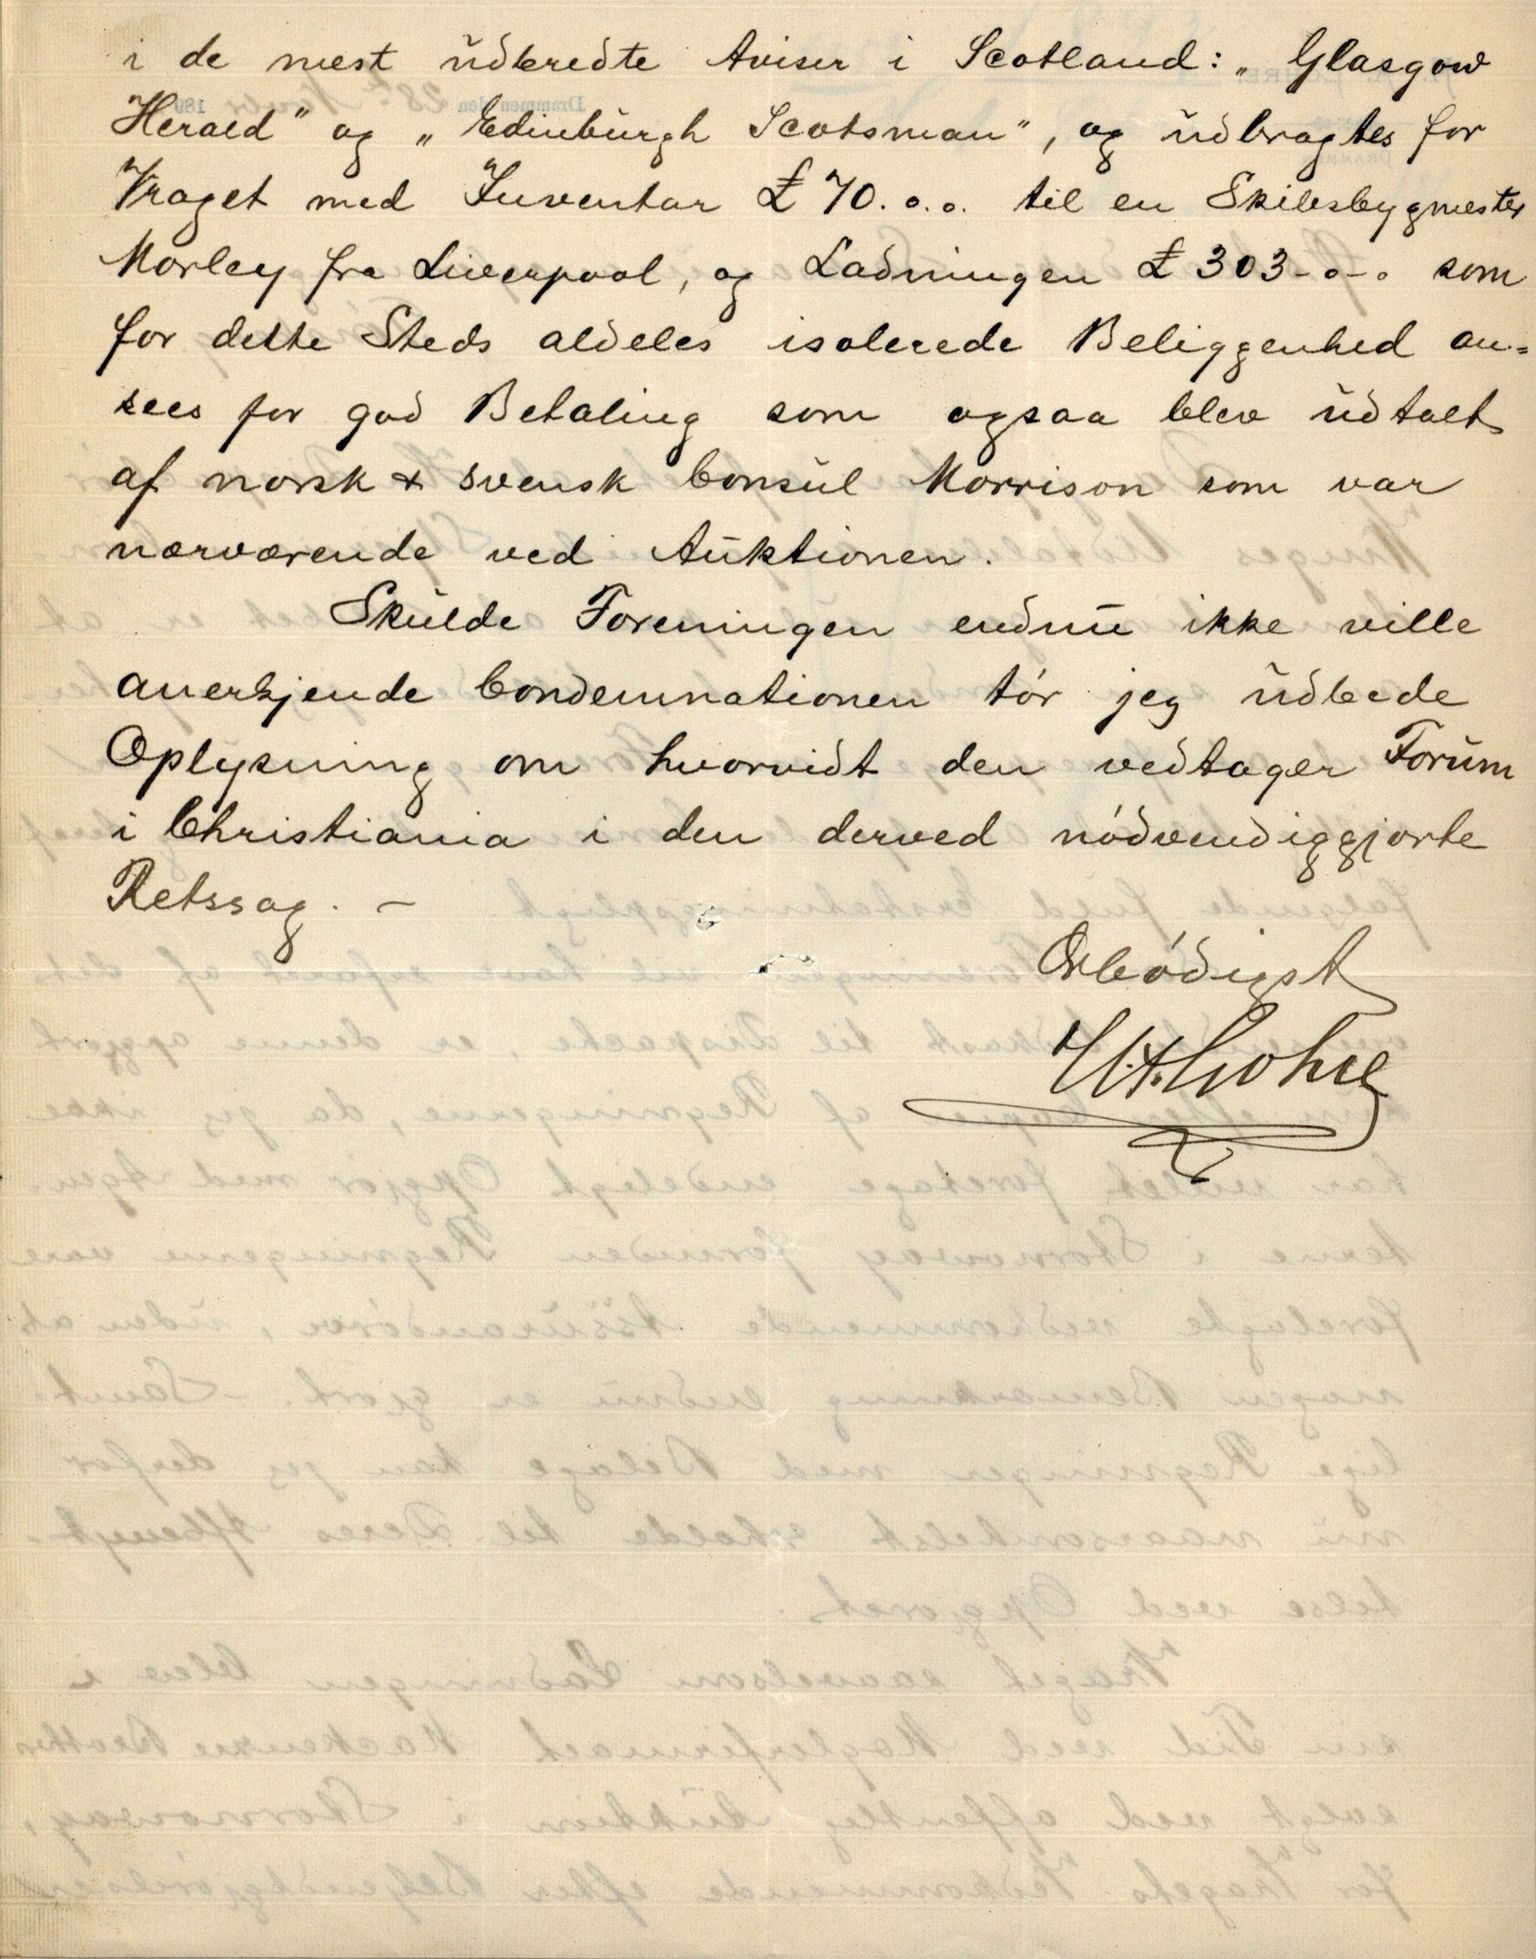 i de mest udbredte Aviser i Scotland: „Glasgow
Herald" og „Edinburgh Scotsman", og udbragtes for
Vraget med Inventar £ 70.o.o. til en Skibsbygmester
Morley fra Liverpool, og Ladningen £ 303-o-o som
for dette Steds aldeles isolerede Beliggenhed an=
sees for god Betaling som ogsaa blev udtalt
af norsk & svensk Consul Morrison som var
nærværende ved Auktionen.
Skulde Foreningen endnu ikke ville
anerkjende Condemnationen tór jeg udbede
Oplysning om hvorvidt den vedtager Forum
i Christiania i den derved nódvendiggjorte
Retssag. –
Ærbódigst